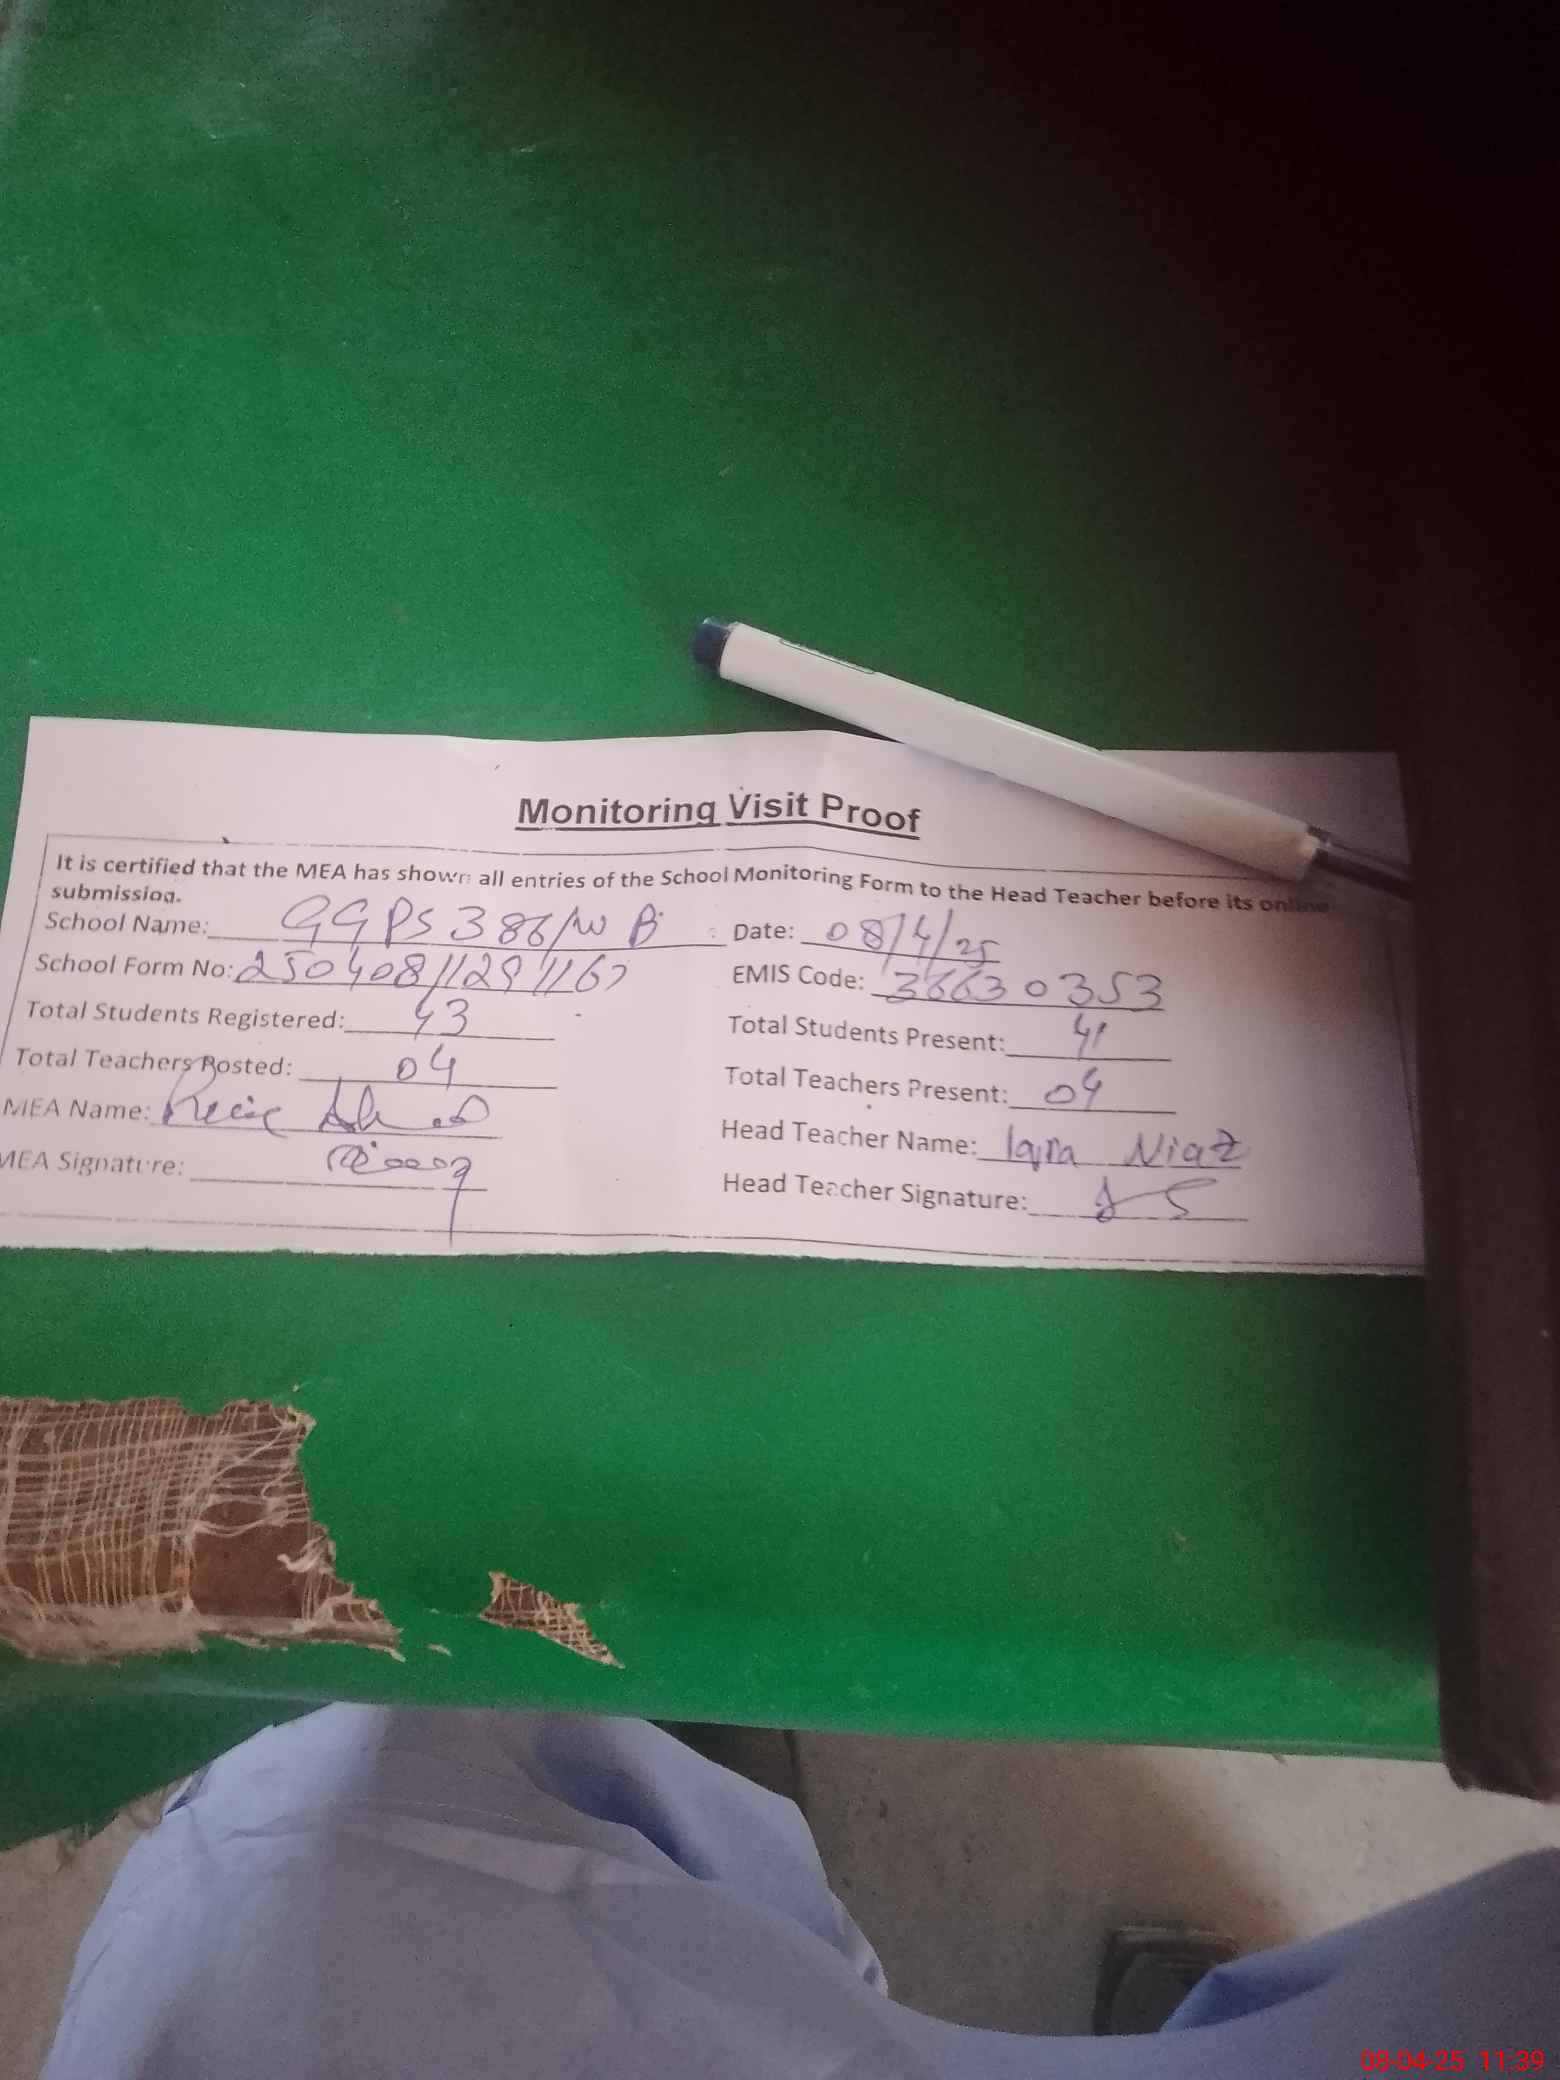 Monitoring Visit Proof
It is certified that the MEA has shown all entries of the School Monitoring Form to the Head Teacher before its online
submission.
School Name: GGPS 386/WB Date: 08/4/25
School Form No: EMIS Code: 36630353
Total Students Registered: 43 Total Students Present: 41
Total Teachers Posted: 04 Total Teachers Present: 04
MEA Name: Head Teacher Name: Iqra Niaz
MEA Signature: Head Teacher Signature:
08-04-25 11:39